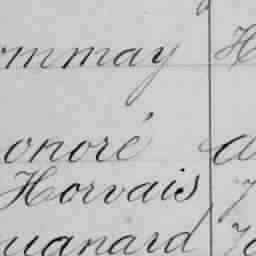 ommay
onoré
Horvais
uanard